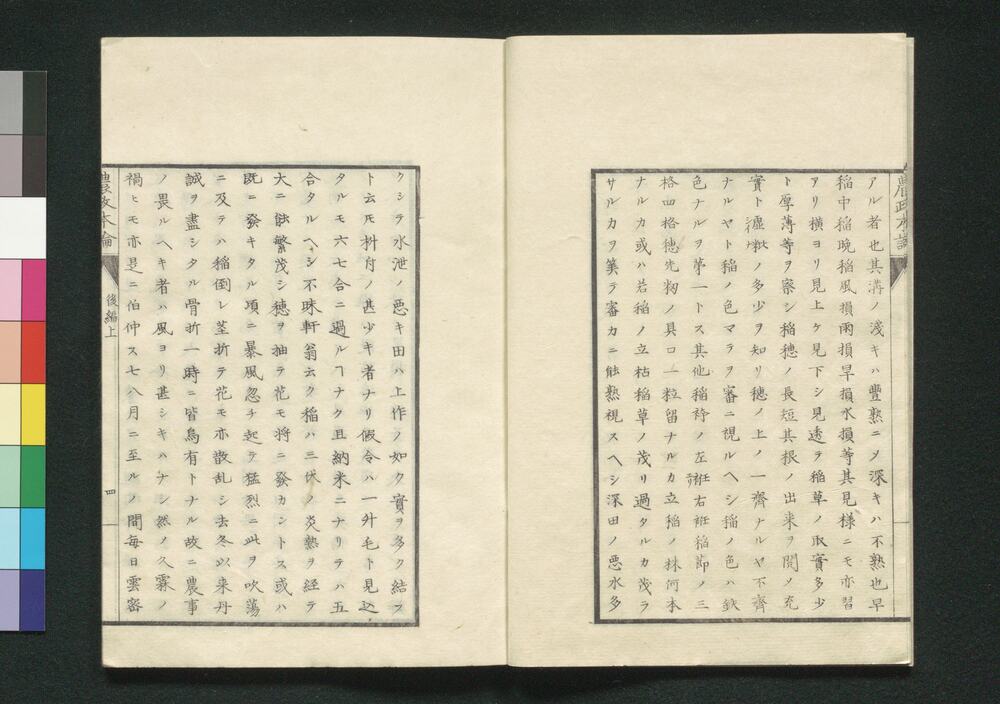 アル者也其溝ノ淺キハ豐熟ニシテ深キハ不熟也早
稲中稲晩稲風損雨損旱損水損等其見様ニモ亦習
アリ横ヨリ見上ケ見下シ見透テ稲草ノ取實多少
ト厚薄等ヲ察シ稲穂ノ長短其根ノ出来ヲ閲メ充
實ト虚粃ノ多少ヲ知リ穂ノ上ノ一齊ナルヤ不齊
ナルヤト稲ノ色マラヲ審ニ視ルヘシ稲ノ色ハ鉄
色ナルヲ第一トス其他稲袴ノ左衽右衽稲節ノ三
格四格穂先籾ノ具口一粒留ナルカ立稲ノ株何本
ナルカ或ハ若稲ノ立枯稲草ノ茂リ過タルカ茂ラ
サルカヲ算テ審カニ能熟視スヘシ深田ノ悪水多
クシテ水泄ノ悪キ田ハ上作ノ如ク實ヲ多ク結ス
ト云𪜈枡付ノ甚少キ者ナリ假令ハ一升毛ト見込
タルモ六七合ニ過ルヿナク且納米ニナリテハ五
合タルヘシ不昧軒翁云ク稲ハ三伏ノ炎熱ヲ経テ
大ニ能繁茂シ穂ヲ抽テ花モ将ニ發カントス或ハ
既ニ發キタル項ニ暴風忽チ起テ猛烈ニ此ヲ吹蕩
ニ及テハ稲倒レ茎折テ花モ亦散乱シ去冬以来丹
誠ヲ盡シタル骨折一時ニ皆烏有トナル故ニ農事
ノ畏ルヘキ者ハ風ヨリ甚シキハナシ然ノ久霖ノ
禍ヒモ亦是ニ伯仲ス七八月ニ至ルノ間毎日雲密
農政本論
後編上
四